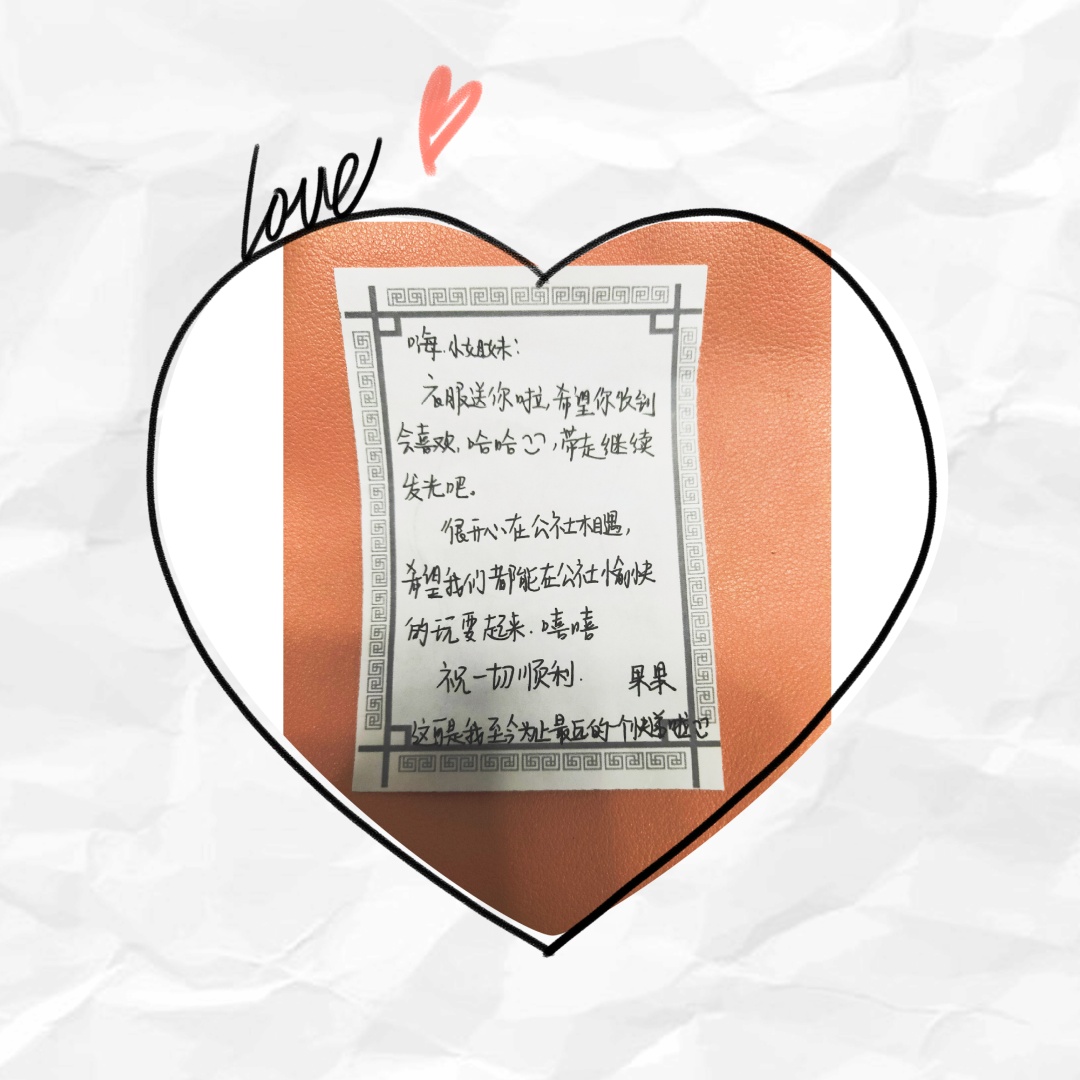 Love
嗨.小姐妹:
衣服送你啦,希望你收到
会喜欢,哈哈,带走继续
发光吧。
很开心在公社相遇,
希望我们都能在公社愉快
的玩耍起来.嘻嘻
祝一切顺利.
果果
这可是我至今为止最后的一个快递啦